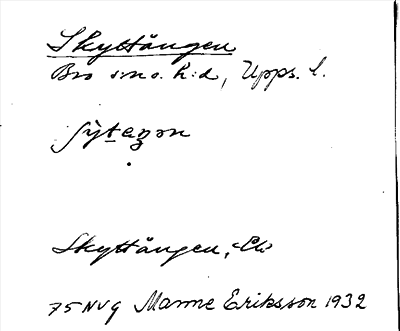 Skyttängen
Bro sn o. h:d, Upps. l.
Skyttängen,
75 NVG Manne Eriksson 1932